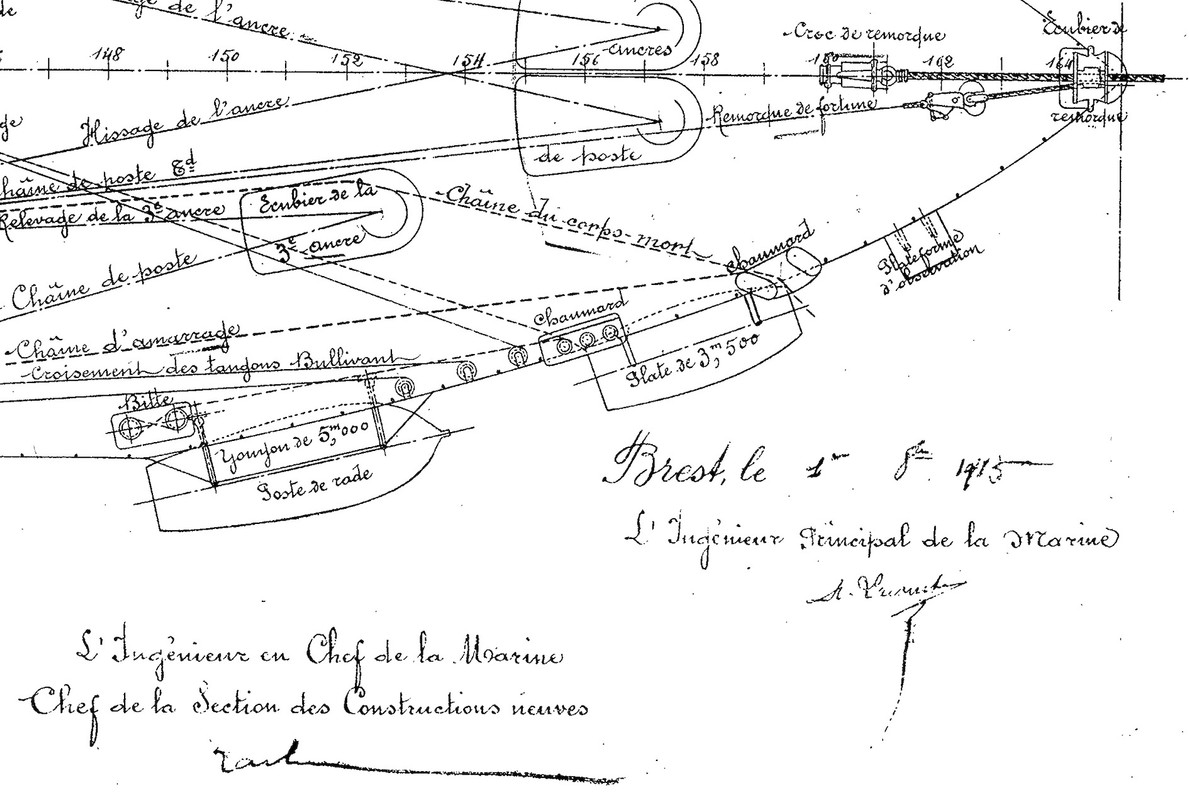 de
ge de l'ancre
Croc de remorque
Ecubier de
ancres
148 150 152 154 156 158 160 162 164
Hissage de l'ancre
Remorque de fortune
remorque
ge
de poste
chaîne de poste Td
Relevage de la 3e ancre
Ecubier de la
3e ancre
Chaîne du corps-mort
Chaumard
Plateforme
d'observation
Chaîne de poste
Chaumard
Chaîne d'amarrage
Croisement des tangons Bullivant
Plate de 3,m500
Bitte
Youyou de 5,m000
Poste de rade
Brest, le 1er 1915
L'Ingénieur Principal de la Marine
L'Ingénieur en Chef de la Marine
Chef de la Section des Constructions neuves